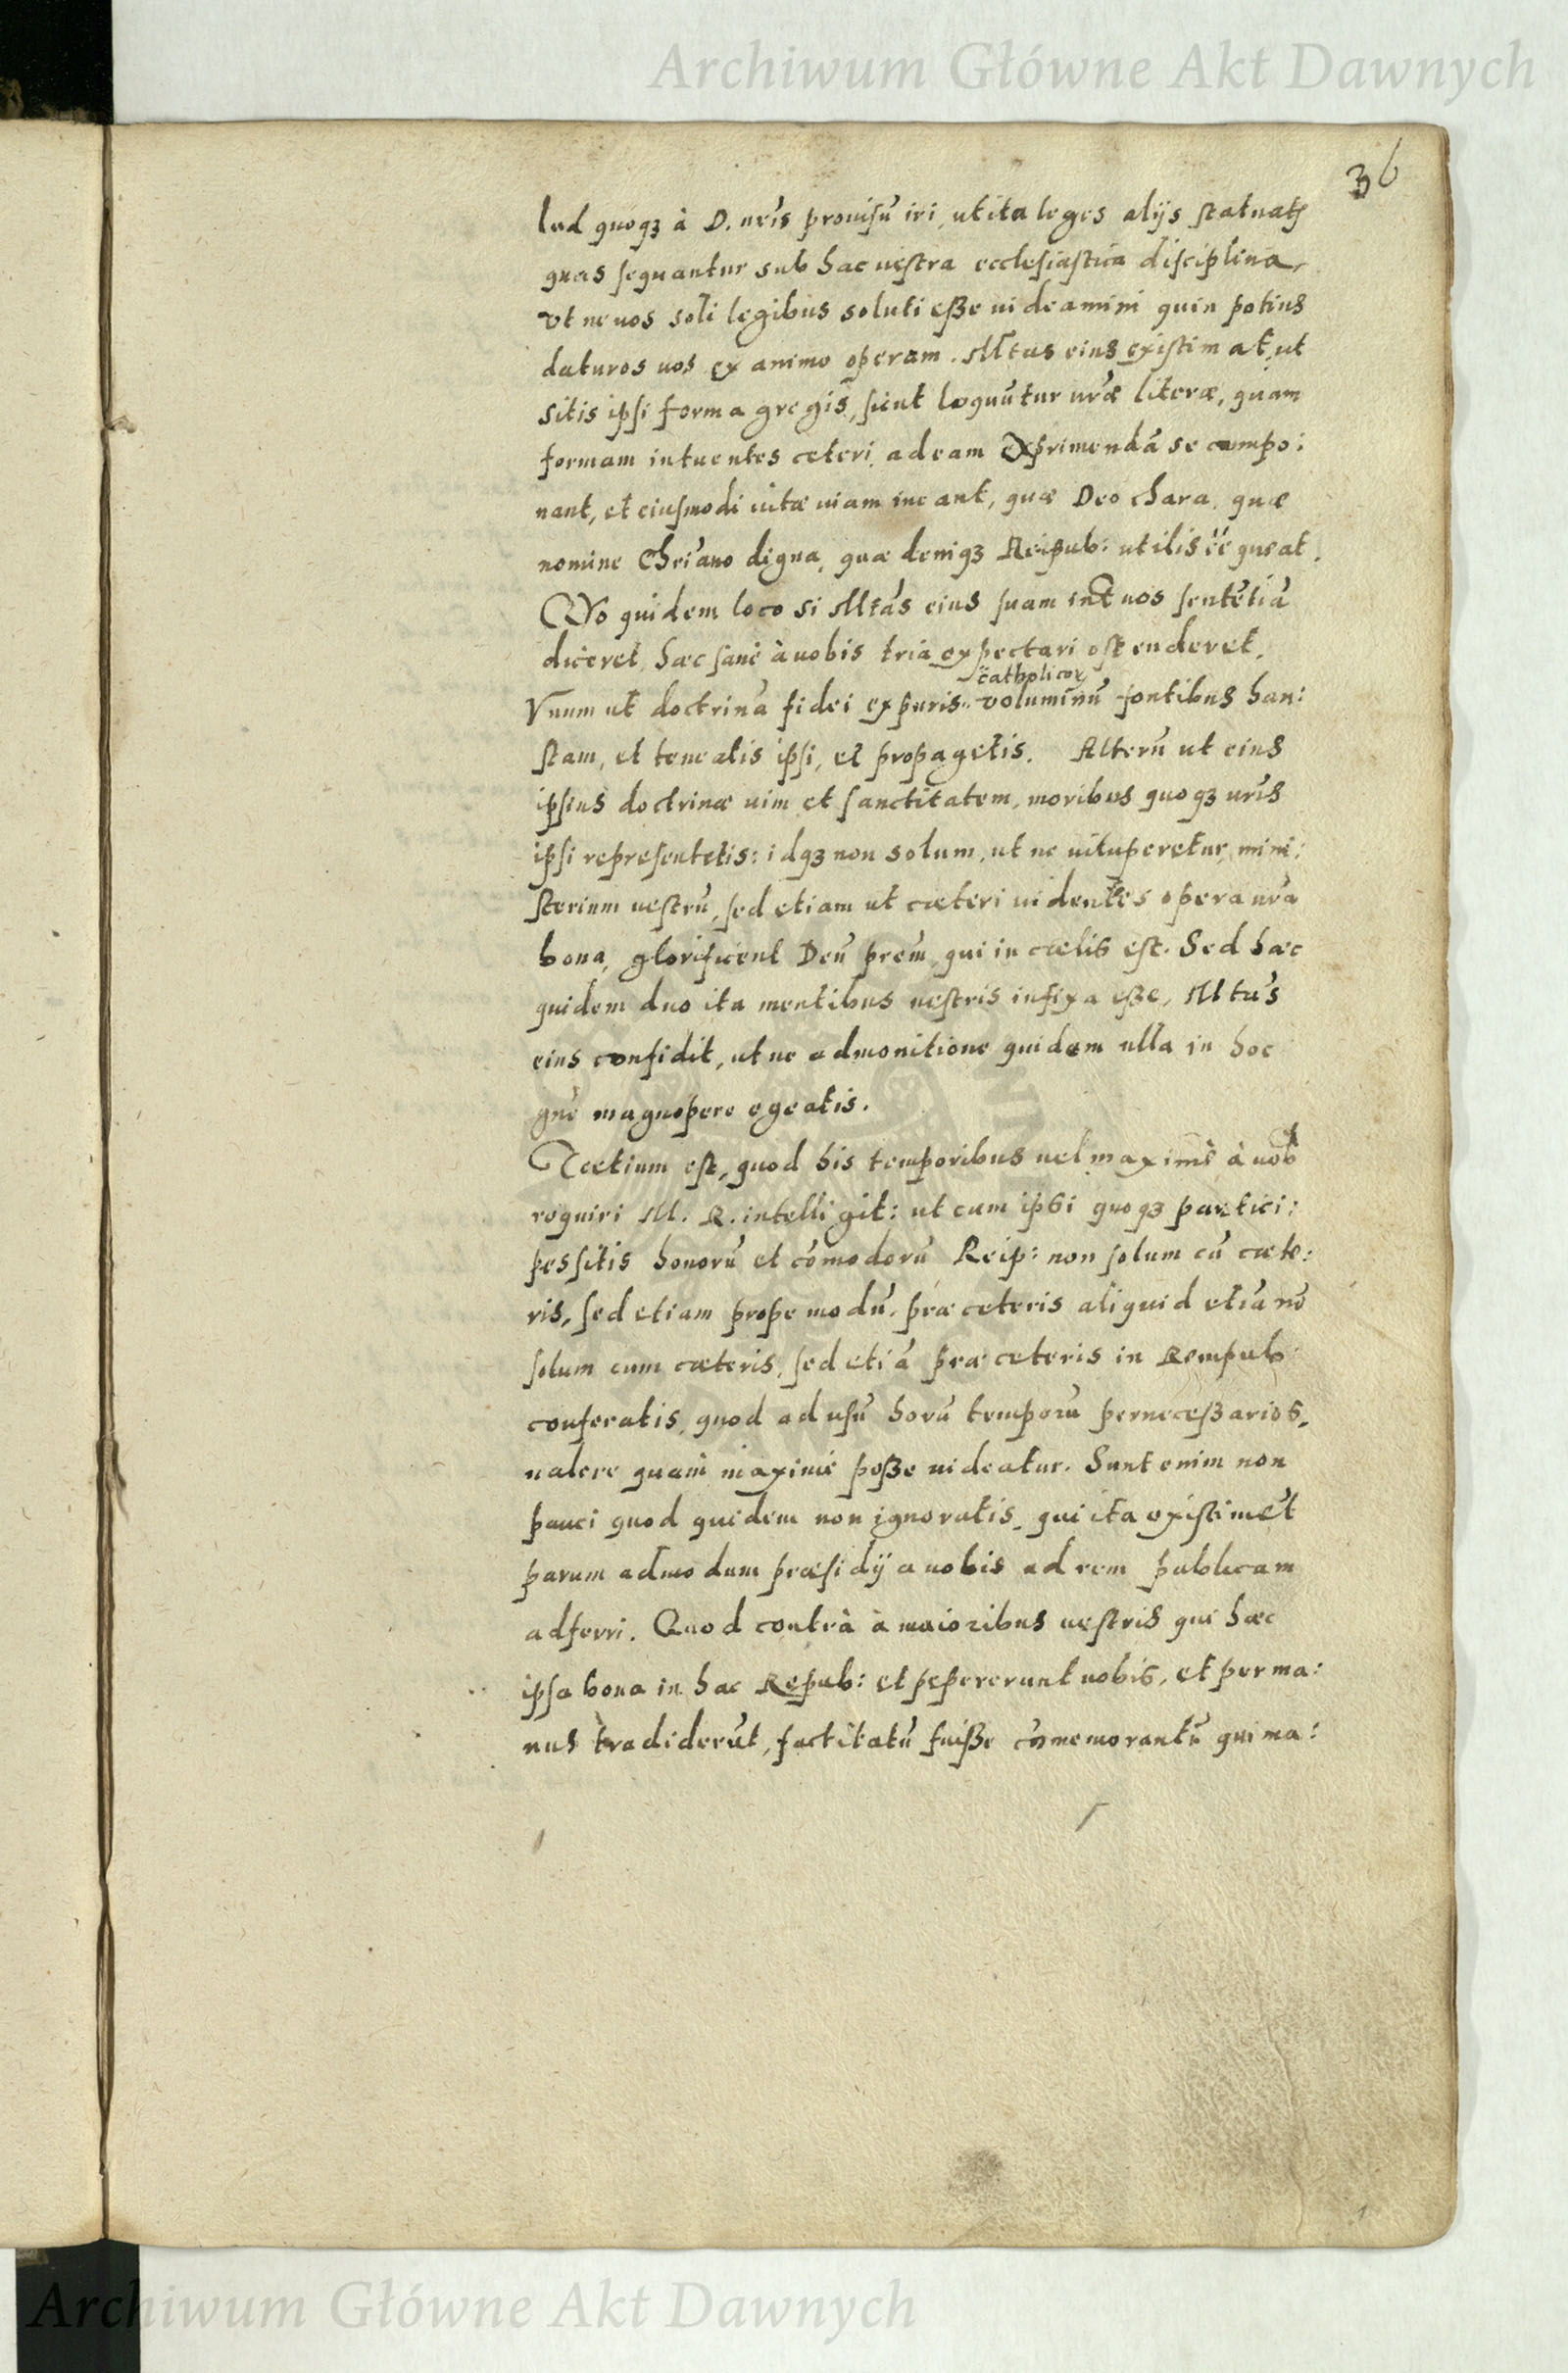 Archiwum Główne Akt Dawnych
36
lud quoqȝ à D. nr̃is prouisũ iri, ut ita leges alijs statuatis
quas sequantur sub hac uestra ecclesiastica disciplina,
vt ne uos soli legibus soluti eße uideamini quin potius
daturos uos ex animo operam. Mtas eius existimat, ut
sitis ipsi forma gregis, sicut loquũtur nrãe literæ, quam
formam intuentes ceteri, ad eam exprimendã se compo:
nant, et eiusmodi uitæ uiam ineant, quæ Deo chara, quæ
nomine Chriãno digna, quæ deniqȝ Reipub: utilis eẽ queat.
Quo quidem loco si Mtãs eius suam int uos sentẽtiã
diceret, hæc sanè à uobis tria expectari ostenderet.
catholicoꝝ
Vnum ut doctrinã fidei ex puris voluminũ fontibus hau:
stam, et teneatis ipsi, et propagetis. Alterũ ut eius
ipsius doctrinæ uim et sanctitatem, moribus quoqȝ uris
ipsi representetis: idqȝ non solum, ut ne uituperetur mini:
sterium uestrũ, sed etiam ut cæteri uidentes opera ura
bona, glorificent Deũ prem̃, qui in cælis est. Sed hæc
quidem duo ita mentibus uestris infixa eße, Mtãs
eius confidit, ut ne admonitione quidem ulla in hoc
gñe magnopere egeatis.
Tertium est, quod his temporibus uel maximè à uob
requiri M. R. intelligit: ut cum ipsi quoqȝ partici:
pes sitis honorũ et cõmodorũ Reip: non solum cũ cæte:
ris, sed etiam propemodũ, præ ceteris aliquid etiã nõ
solum cum cæteris, sed etiã præ ceteris in Rempub
conferatis, quod ad usũ horũ temporũ perneceßarios,
ualere quam maximè poße uideatur. Sunt enim non
pauci quod quidem non ignoratis, qui ita existimẽt
parum admodum præsidij a uobis ad rem publicam
adferri. Quod contrà à maioribus uestris qui hæc
ipsa bona in hac Repub: et pepererunt uobis, et per ma:
nus tradiderũt, factitatũ fuiße cõmemorantũ qui ma:
Archiwum Główne Akt Dawnych